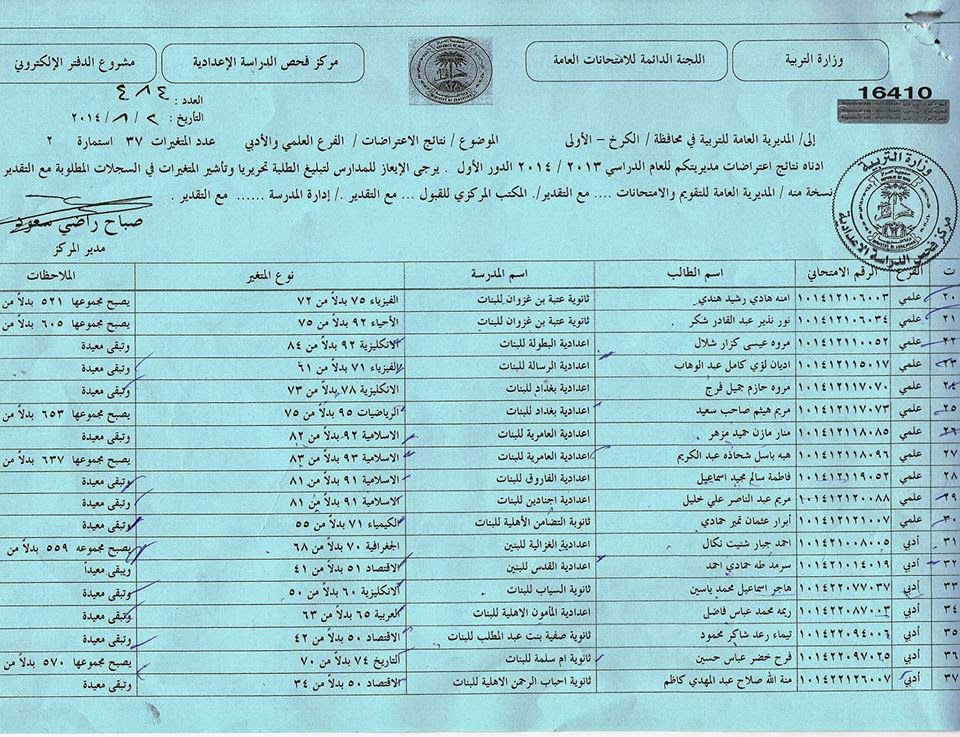 وزارة التربية
اللجنة الدائمة للامتحانات العامة
مركز فحص الدراسة الإعدادية
مشروع الدفتر الإلكتروني
16410
العدد : ٤٨٤
التاريخ : ٢ / ٨ / ٢٠١٤
إلى/ المديرية العامة للتربية في محافظة / الكرخ – الأولى الموضوع / نتائج الاعتراضات / الفرع العلمي والأدبي عدد المتغيرات ٣٧ استمارة ٢
ادناه نتائج اعتراضات مديريتكم للعام الدراسي ٢٠١٣ / ٢٠١٤ الدور الأول . يرجى الإيعاز للمدارس لتبليغ الطلبة تحريريا وتأشير المتغيرات في السجلات المطلوبة مع التقدير
نسخة منه / المديرية العامة للتقويم والامتحانات .... مع التقدير/. المكتب المركزي للقبول ... مع التقدير ./ إدارة المدرسة ...... مع التقدير .
وزارة التربية
مركز فحص الدراسة الاعدادية
صباح راضي سعود
مدير المركز
ت الفرع الرقم الامتحاني اسم الطالب اسم المدرسة نوع المتغير الملاحظات
٢٠ علمي ١٠١٤١٢١٠٦٠٠٣ امنه هادي رشيد هندي ثانوية عتبة بن غزوان للبنات الفيزياء ٧٥ بدلاً من ٧٢ يصبح مجموعها ٥٢١ بدلاً من
٢١ علمي ١٠١٤١٢١٠٦٠٣٤ نور نذير عبد القادر شكر ثانوية عتبة بن غزوان للبنات الأحياء ٩٢ بدلاً من ٧٥ يصبح مجموعها ٦٠٥ بدلاً من
٢٢ علمي ١٠١٤١٢١١٠٠٥٢ مروه عيسى كزار شلال اعدادية البطولة للبنات الانكليزية ٩٢ بدلاً من ٨٤ وتبقى معيدة
٢٣ علمي ١٠١٤١٢١١٥٠١٧ اديان لؤي كامل عبد الوهاب اعدادية الرسالة للبنات الفيزياء ٧١ بدلاً من ٦١ وتبقى معيدة
٢٤ علمي ١٠١٤١٢١١٧٠٧٠ مروه حازم جميل فرج اعدادية بغداد للبنات الانكليزية ٧٨ بدلاً من ٧٣ وتبقى معيدة
٢٥ علمي ١٠١٤١٢١١٧٠٧٣ مريم هيثم صاحب سعيد اعدادية بغداد للبنات الرياضيات ٩٥ بدلاً من ٧٥ يصبح مجموعها ٦٥٣ بدلاً من
٢٦ علمي ١٠١٤١٢١١٨٠٨٥ منار مازن حميد مزهر اعدادية العامرية للبنات الاسلامية ٩٢ بدلاً من ٨٢ وتبقى معيدة
٢٧ علمي ١٠١٤١٢١١٨٠٩٦ هبه باسل شحاذه عبد الكريم اعدادية العامرية للبنات الاسلامية ٩٣ بدلاً من ٨٣ يصبح مجموعها ٦٣٧ بدلاً من
٢٨ علمي ١٠١٤١٢١١٩٠٥٢ فاطمة سالم مجيد اسماعيل اعدادية الفاروق للبنات الاسلامية ٩١ بدلاً من ٨١ وتبقى معيدة
٢٩ علمي ١٠١٤١٢١٢٠٠٨٨ مريم عبد الناصر علي خليل اعدادية اجنادين للبنات الاسلامية ٩١ بدلاً من ٨١ وتبقى معيدة
٣٠ علمي ١٠١٤١٢١٢١٠٠٧ أبرار عثمان نمير حمادي ثانوية التضامن الأهلية للبنات الكيمياء ٧١ بدلاً من ٥٥ وتبقى معيدة
٣١ أدبي ١٠١٤٢١٠٠٨٠٠٥ احمد جبار شنيت نكال اعدادية الغزالية للبنين الجغرافية ٧٠ بدلاً من ٦٨ يصبح مجموعه ٥٥٩ بدلاً من
٣٢ أدبي ١٠١٤٢١٠١٤٠١٩ سرمد طه حمادي احمد اعدادية القدس للبنين الاقتصاد ٥١ بدلاً من ٤١ ويبقى معيداً
٣٣ أدبي ١٠١٤٢٢٠٧٧٠٣٧ هاجر اسماعيل محمد ياسين ثانوية السياب للبنات الانكليزية ٦٠ بدلاً من ٥٠ وتبقى معيدة
٣٤ أدبي ١٠١٤٢٢٠٨٧٠٠٣ ريمه محمد عباس فاضل اعدادية المأمون الاهلية للبنات العربية ٦٥ بدلاً من ٦٣ وتبقى معيدة
٣٥ أدبي ١٠١٤٢٢٠٩٤٠٠٦ تيماء رعد شاكر محمود ثانوية صفية بنت عبد المطلب للبنات الاقتصاد ٥٠ بدلاً من ٤٢ وتبقى معيدة
٣٦ أدبي ١٠١٤٢٢٠٩٧٠٢٥ فرح خضر عباس حسين ثانوية ام سلمة للبنات التاريخ ٧٤ بدلاً من ٧٠ يصبح مجموعها ٥٧٠ بدلاً من
٣٧ أدبي ١٠١٤٢٢١٢٦٠٠٧ منة الله صلاح عبد المهدي كاظم ثانوية احباب الرحمن الاهلية للبنات الاقتصاد ٥٠ بدلاً من ٣٤ وتبقى معيدة